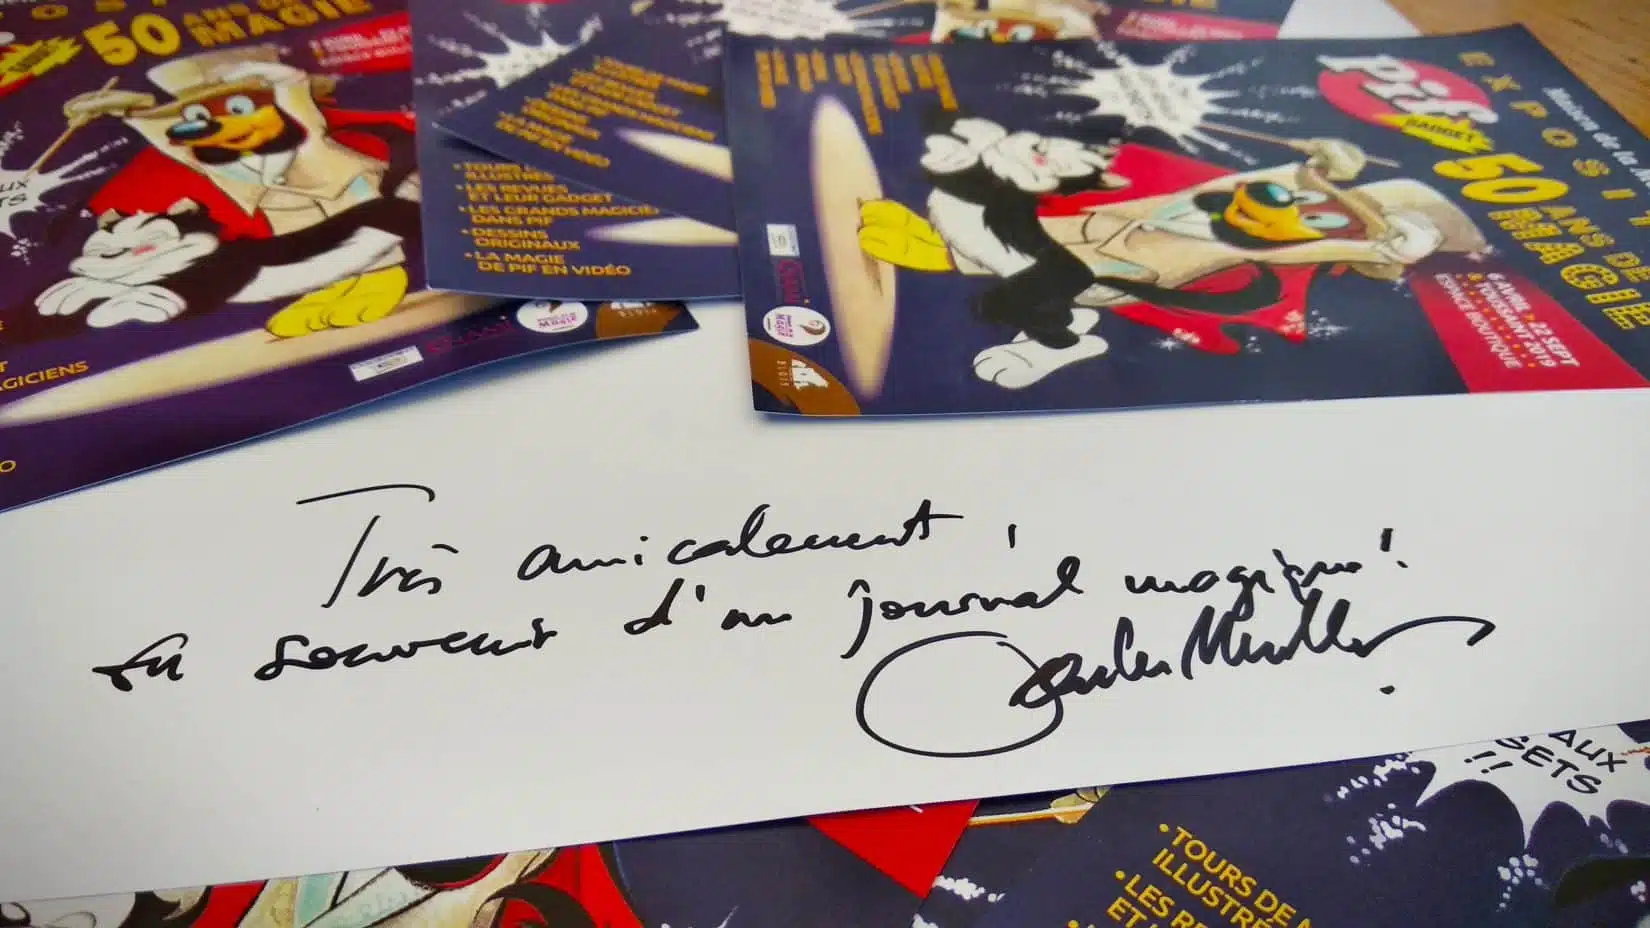 50 ANS DE
MAGIE
AUX
TS
T
AGICIENS
• TOURS
ILLUSTRÉS
• LES REVUES
ET LEUR GADGET
• LES GRANDS MAGICIE
DANS PIF
• DESSINS
ORIGINAUX
• LA MAGIE
DE PIF EN VIDÉO
Maison de la
EXPOSIT
Pif
GADGET
50 ANS DE
MAGIE
6 AVRIL > 22 SEPT
& TOUSSAINT 2019
ESPACE BOUTIQUE
BLOIS
Très amicalement,
En souvenir d'un journal magique !
Charles Muller
AUX
SETS
!!
• TOURS DE M
ILLUSTRÉ
• LES RE
ET